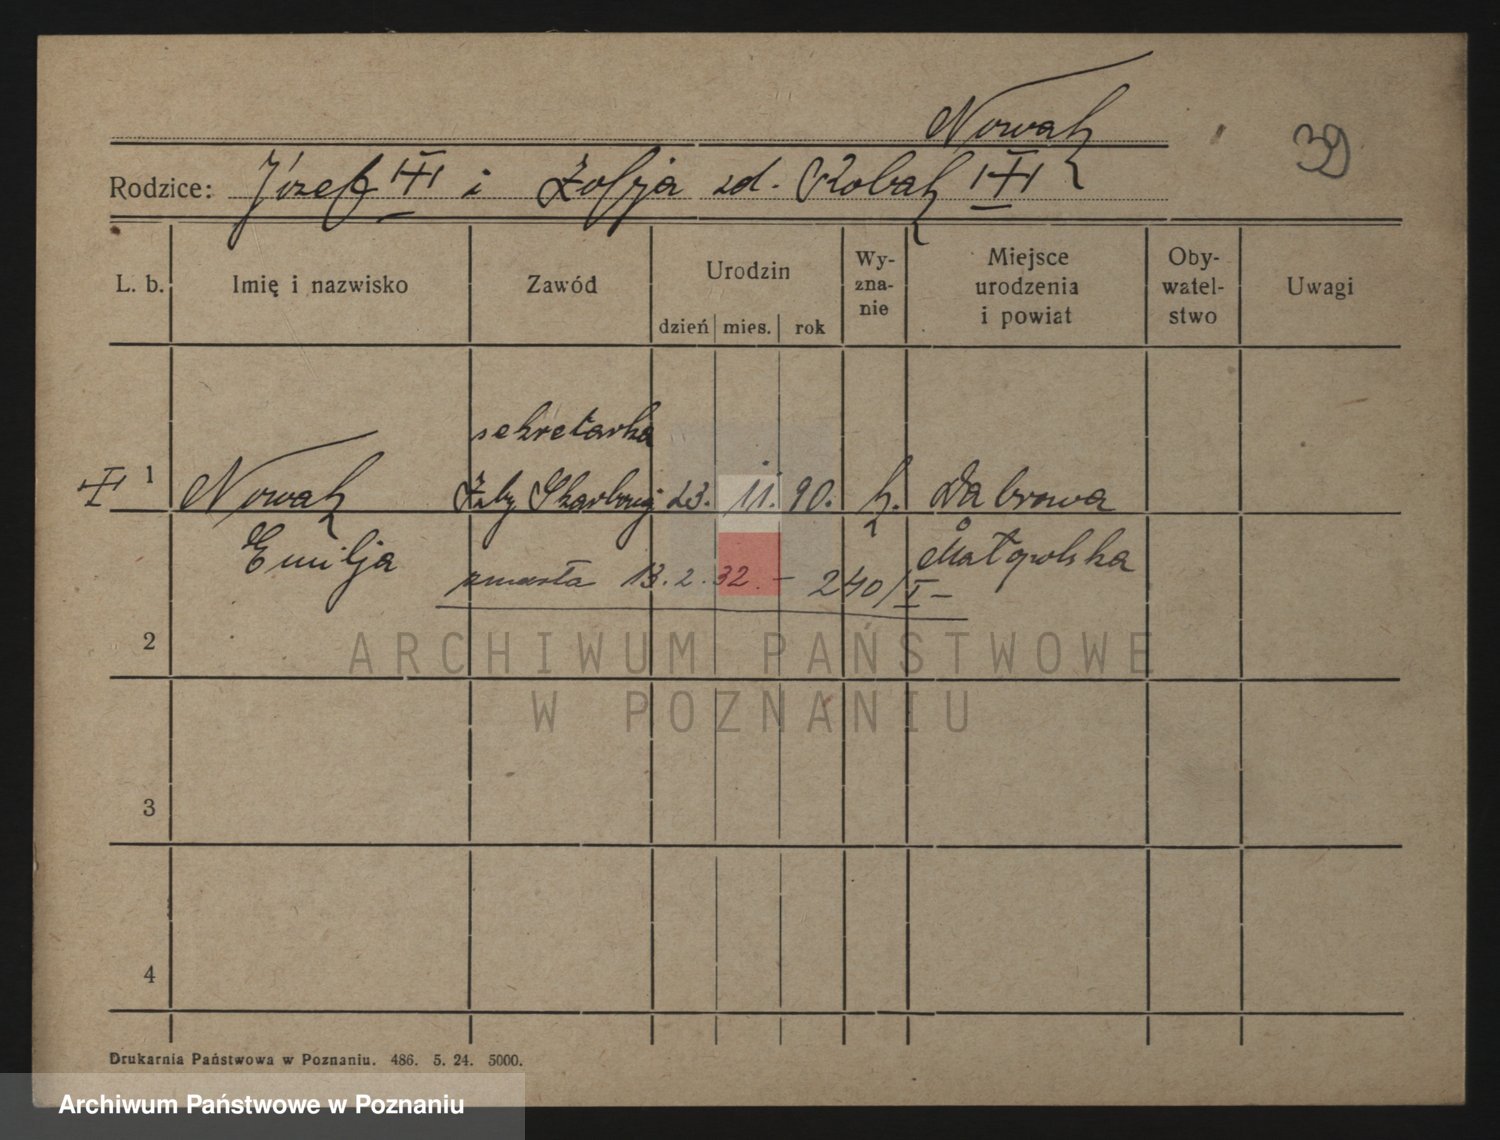 Nowak
39
Rodzice: Józef i Zofja zd. Robak
L. b. Imię i nazwisko Zawód Urodzin dzień mies. rok Wy-zna-nie Miejsce urodzenia i powiat Oby-watel-stwo Uwagi
sekretarka
1 Nowak Izby Skarbowej 23. 11. 90. k. Dabrowa
Emilja Małopolska
zmarła 13.2.32. – 240/I –
2
ARCHIWUM PAŃSTWOWE
W POZNANIU
3
4
Drukarnia Państwowa w Poznaniu. 486. 5. 24. 5000.
Archiwum Państwowe w Poznaniu